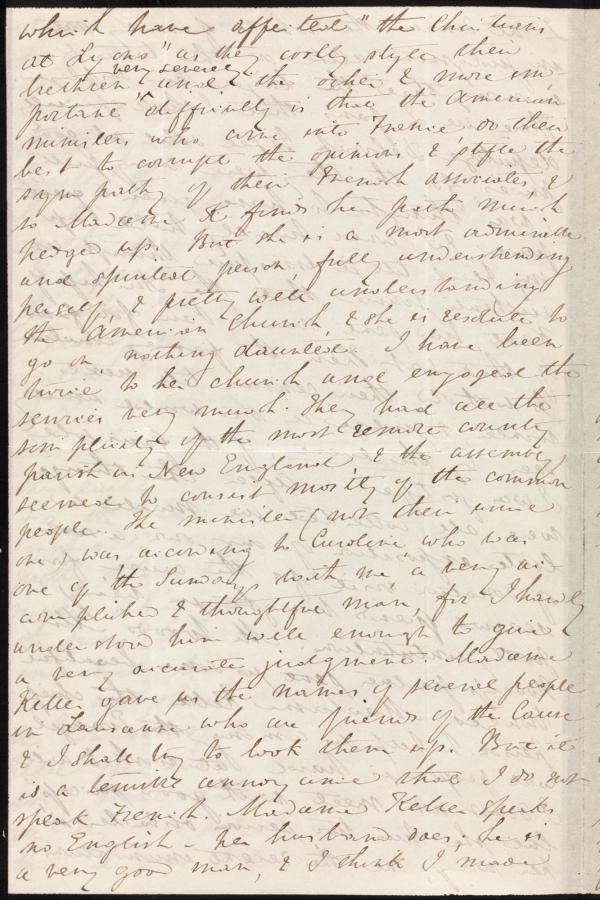 which have affected "the Christians
at Lyons" as they coolly style their
brethren very severely and the other & more im-
portant difficulty is that the American
ministers who come into France do their
best to corrupt the opinions & stifle the
sympathy of their French associates, &
so Madame K finds her path much
hedged up. But she is a most admirable
and spirited person, fully understanding
herself & pretty well understanding
the American Church, & she is resolute to
go on, nothing daunted. I have been
twice to her church and enjoyed the
services very much. They had all the
simplicity of the most remote country
parish in New England, & the assembly
seemed to consist mostly of the common
people. The minister (not their usual
one) was according to Caroline who was
one of the Sundays with me "a very ac-
complished & thoughtful man", for I hardly
understood him well enough to give
a very accurate judgment. Madame
Keller gave us the names of several people
in Lausanne who are friends of the Cause
& I shall try to look them up. But it
is a terrible annoyance that I do not
speak French. Madame Keller speaks
no English - her husband does; he is
a very good man, & I think I made